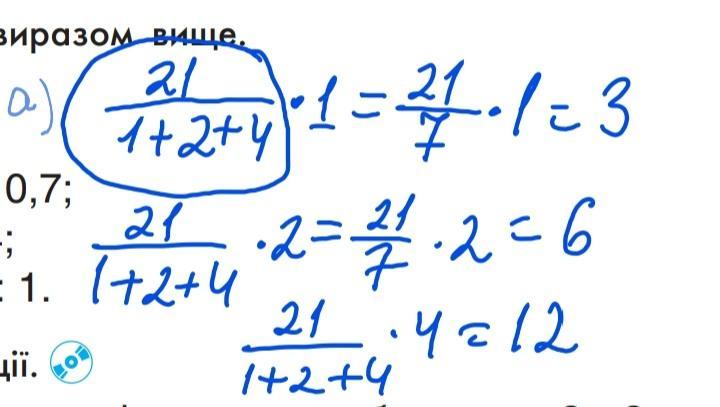 виразом вище.
а) 21/(1+2+4) · 1 = 21/7 · 1 = 3
0,7;
21/(1+2+4) · 2 = 21/7 · 2 = 6
;
: 1.
21/(1+2+4) · 4 = 12
ції.